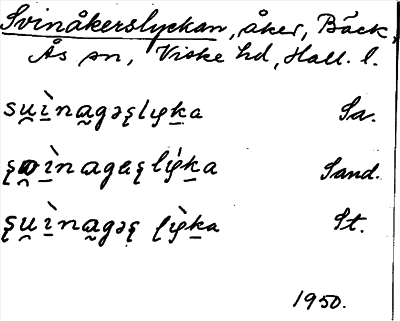 Svinåkerslyckan, åker, Bäck,
Ås sn, Viske hd, Hall. l.
su̯ìnagəs̨lyk̠a Sa.
s̨u̯ìnagɐs̨ lỳk̠a Sand.
s̨u̯ìnagəs̨ lỳk̠a St.
1950.